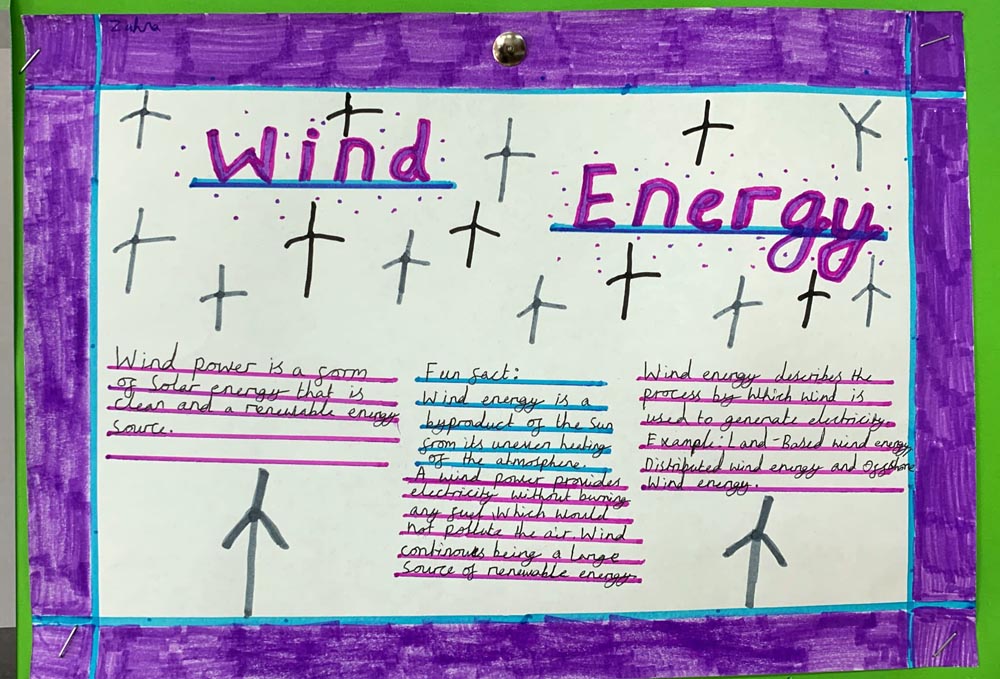 Zuhra
Wind
Energy
Wind power is a form
of solar energy that is
clean and a renewable energy
source.
Fun fact:
Wind energy is a
byproduct of the sun
from its uneven heating
of the atmosphere.
A wind power provides
electricity without burning
any fuel, which would
not pollute the air. Wind
continoues being a large
source of renewable energy.
Wind energy describes the
process by which wind is
used to generate electricity.
Example: Land-Based wind energy,
Distributed wind energy and Offshore
Wind energy.